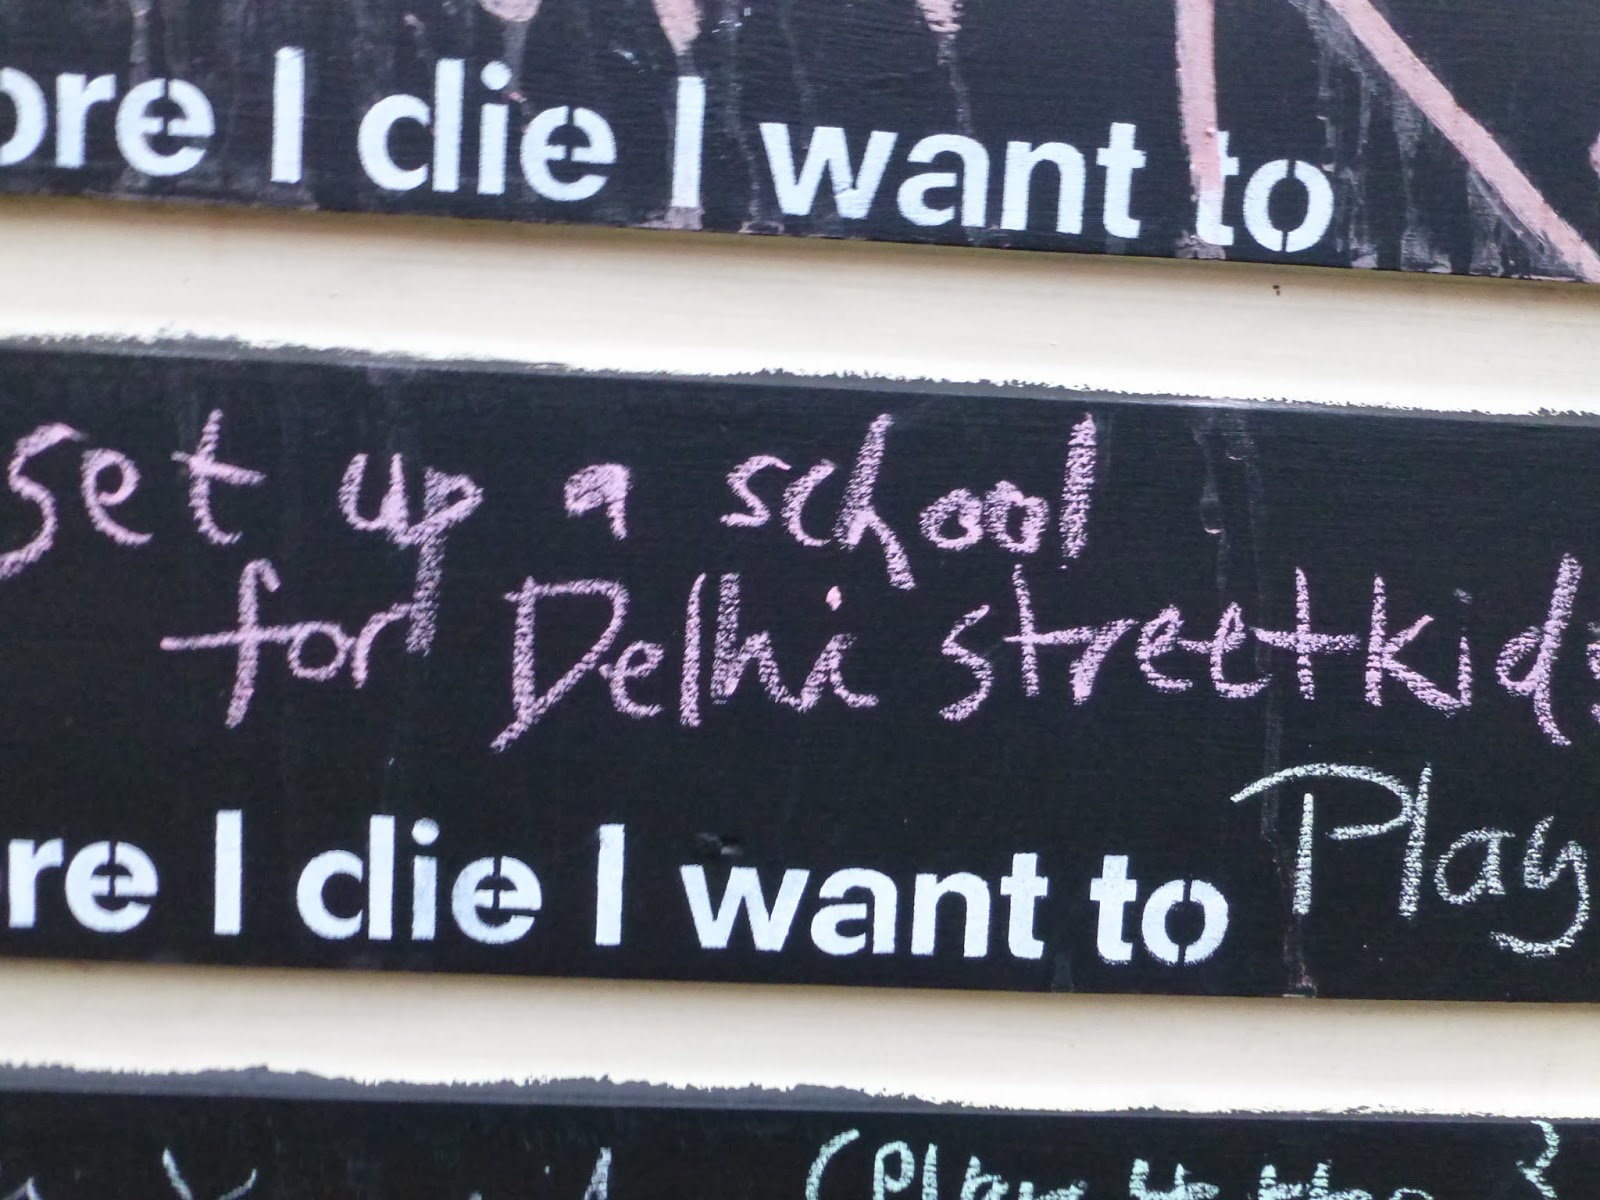 ore I die I want to
set up a school
for Delhi streetkids
ore I die I want to Play